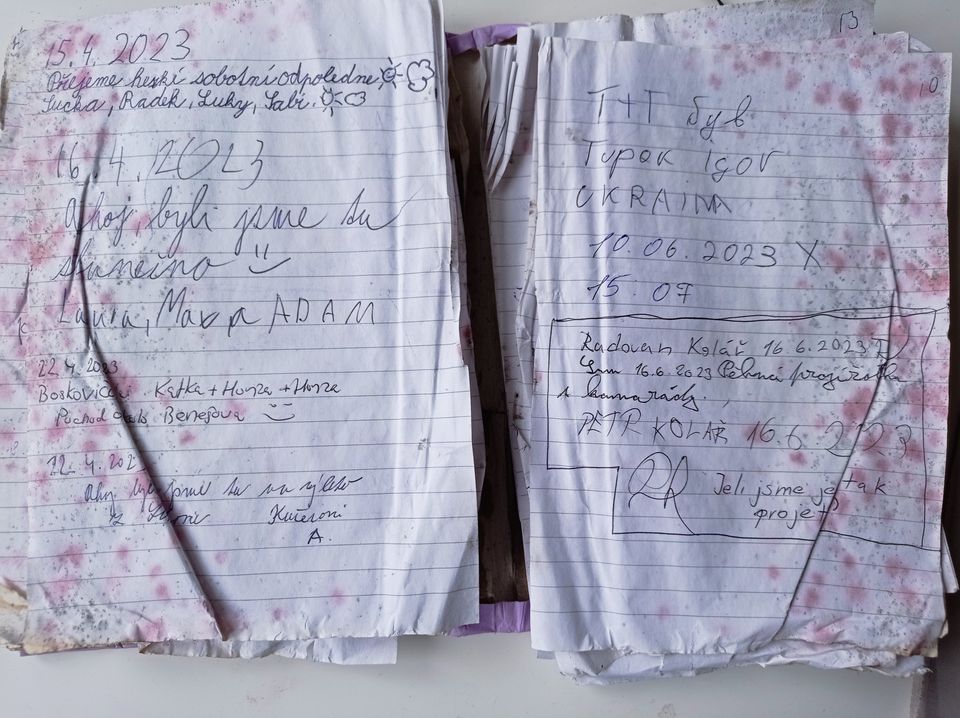 15.4.2023
Přejeme heski sobotní odpoledne
Lucka, Radek, Luky, Sabi.
16.4.2023
Ahoj, byli jsme tu
Laura, Maxp ADAM
22.4.2023
Katka + Honza + Honza
Pochod Benešova
22.4.202
jsme tu na
Kučerovi
A.
13
10
T+T був
Tupak Igor
UKRAINA
10.06.2023 X
15:07
Radovan Kolář 16.6.2023
16.6.2023 Pěkná projížďka
s kamarády.
PETR KOLÁŘ 16.6 2023
Jeli jsme jen tak
projet